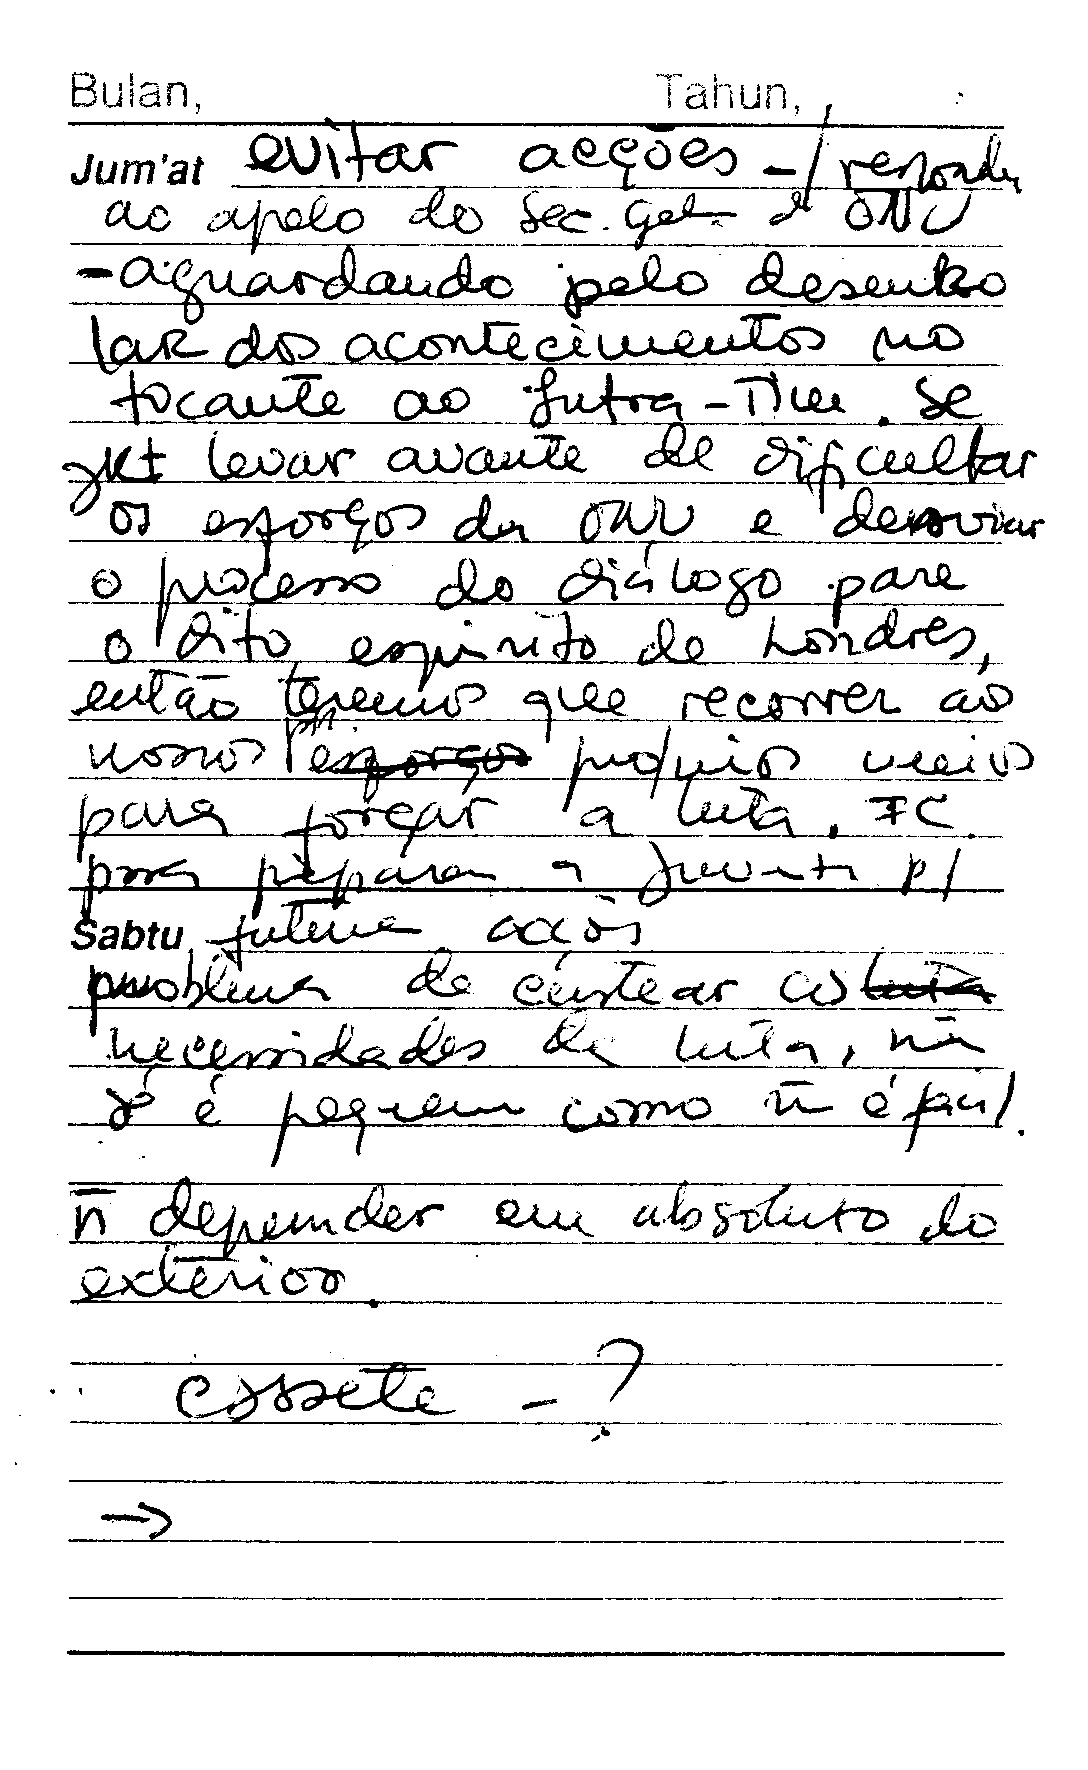 Bulan, Tahun,
Jum'at evitar acções - / responder
ao apelo do Sec. Ger. d ONU
- aguardando pelo desenro
lar dos acontecimentos no
tocante ao Intra-Tim. Se
JKT levar avante de dificultar
os esforços da ONU e desviar
o processo do diálogo para
o dito espirito de Londres,
então teremos que recorrer aos
nossos esforços próprios meios
para forçar a luta. FC.
para preparar a Juventu p/
Sabtu futura acçõs
problema de custear as luta
necessidades da luta, nã
é pequem como ñ é fácil.
ñ depender em absoluto do
exterior.
cassete - ?
→